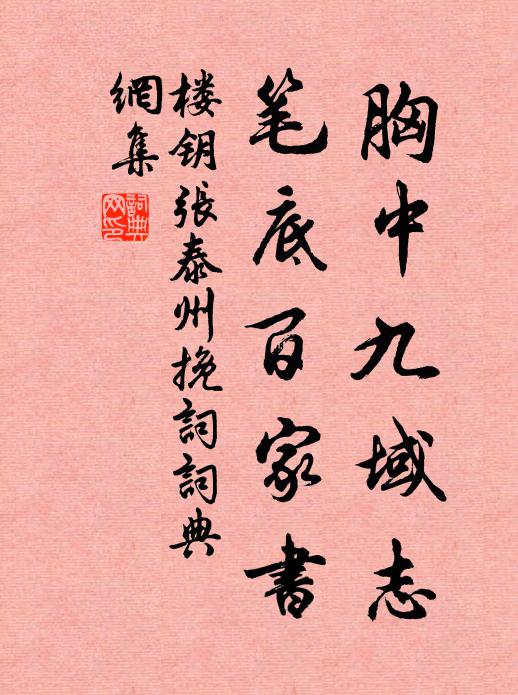 胸中九域志
笔底百家書
楼钥張泰州挽詞詞典
網集
詞典
网印